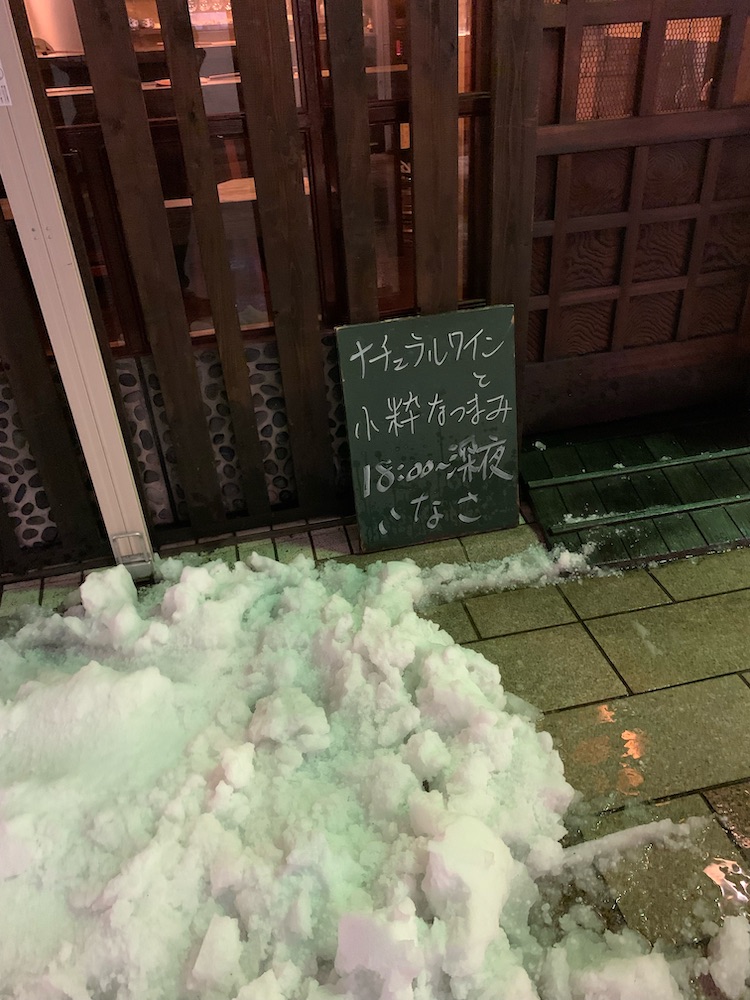 ナチュラルワイン
と
小粋なつまみ
18:00〜深夜
いなさ